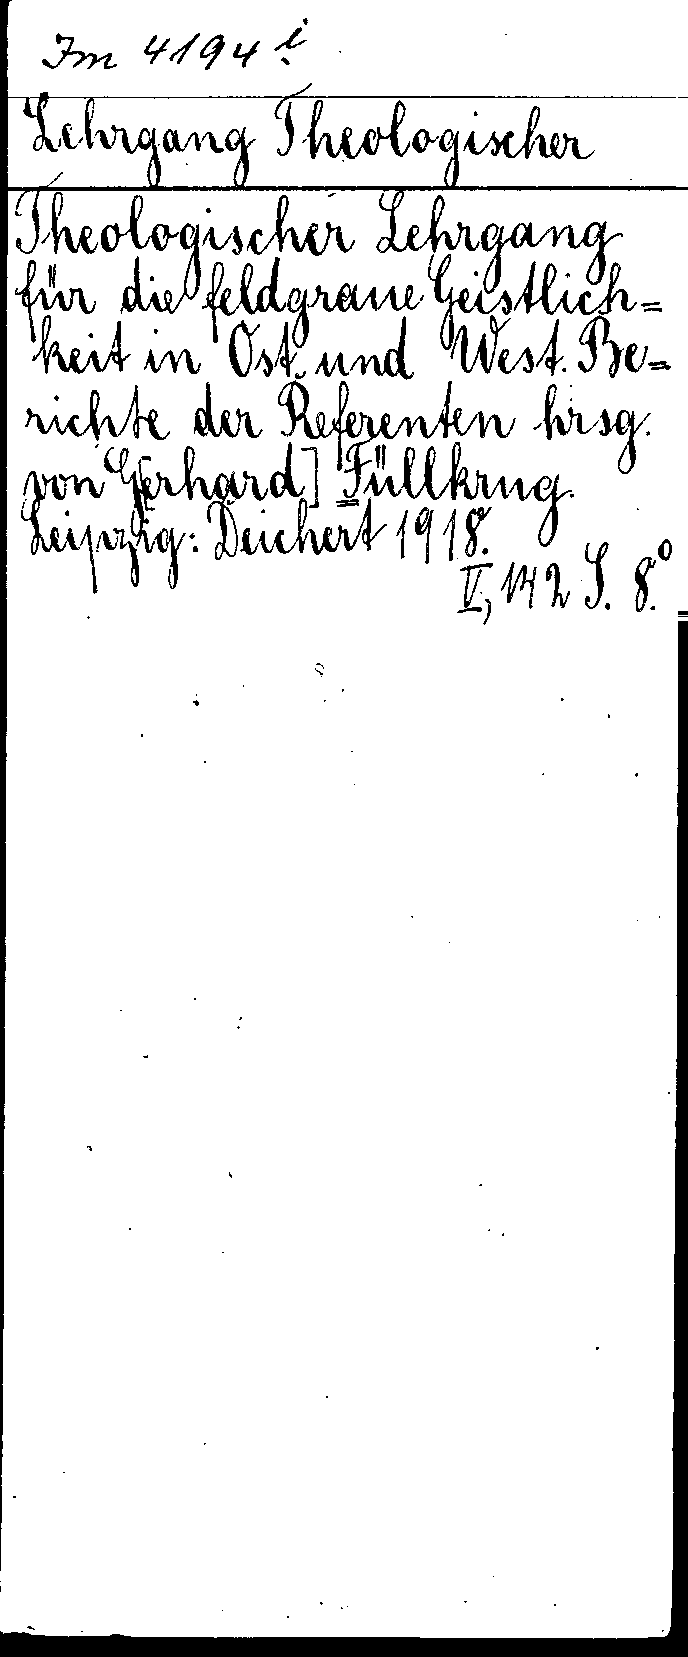 Im 4194 i
Lehrgang Theologischer
Theologischer Lehrgang
für die feldgraue Geistlich=
keit in Ost und West. Be=
richte der Referenten hrsg.
von G[erhard] Füllkrug.
Leipzig: Deichert 1918.
V, 142 S. 8.°